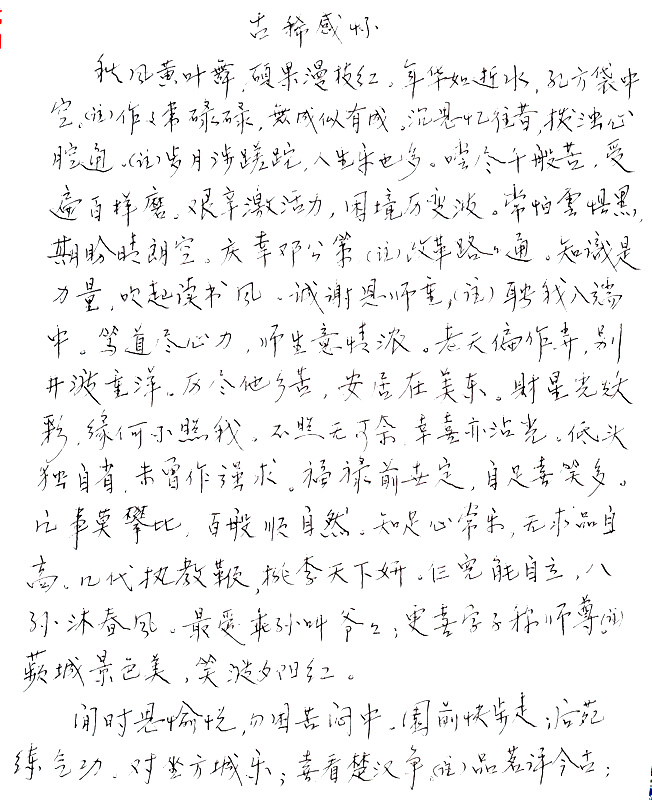 古稀感怀
秋风黄叶舞,硕果漫枝红。年华如逝水,孔方袋中
空。(注)作々常碌碌,无成似有成。沉思忆往昔,拨浊心
腔通。(注)岁月涉蹉跎,人生乐也多。尝尽千般苦,受
遍百样磨。艰辛激活力,困境历变波。常怕云惧黑,
期盼晴朗空。庆幸邓公策(注)改革路々通。知識是
力量,吹起读书风。诚谢恩师重,(注)聘我入端
中。笃道尽心力,师生意情浓。老天偏作弄,别
井渡重洋。历尽他乡苦,安居在美东。财星光妖
彩,缘何不照我。不照无可奈,幸喜亦沾光。低头
独自省,未曾作强求。福禄前世定,自足喜笑多。
凡事莫攀比,百般顺自然。知足心常乐,无求品自
高。几代执教鞭,桃李天下妍。仨児能自立,八
孙沐春风。最爱乖孙叫爷々;更喜学子称师尊(注)
蘋城景色美,笑泼夕阳红。
闲时思愉悦,勿困苦闷中。園前快步走;后苑
练气功。对坐方城乐;喜看楚汉争(注)品茗评今古;